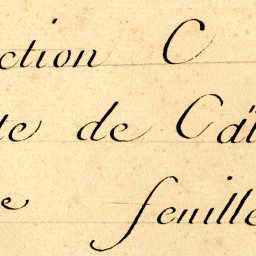 ction C
te de Cât
e feuille